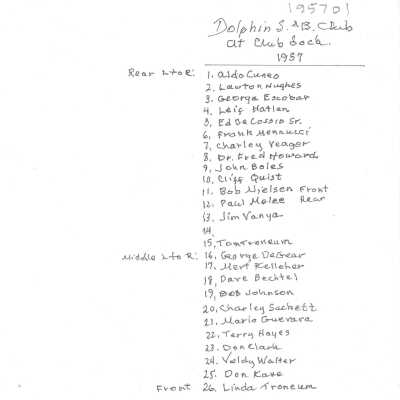 195701
Dolphin S. & B. Club
at Club Dock.
1957
Rear L to R: 1. Aldo Cuneo
2. Lawton Hughes
3. George Escobar
4. Leif Hatlen
5. Ed De Cossio Sr.
6. Frank Mennucci
7. Charley Yeager
8. Dr. Fred Howard
9. John Boles
10. Cliff Quist
11. Bob Nielsen Front
12. Paul Melee Rear
13. Jim Vanya
14.
15. Tom Troneum
Middle L to R: 16. George DeGear
17. Mert Kelleher
18. Dave Bechtel
19. Bob Johnson
20. Charley Sachett
21. Mario Guevara
22. Terry Hayes
23. Don Clark
24. Veldy Walter
25. Don Kave
Front 26. Linda Troneum